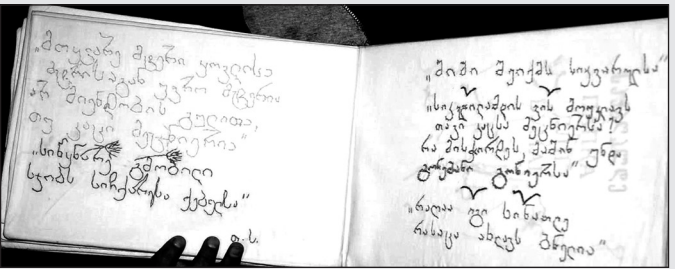 „მოყვარე მტერი ყოვლისა
მტრისაგან უფრო მტერია
არ მიენდობის გულითა,
თუ კაცი მეცნიერია"
„სიწყნარე გმობილი
სჯობს სიჩქარესა ქებულსა"
თ.ს.
„შიში შეიქმს სიყვარულსა"
„სიკვდილამდის ვის მოუკლავს
თავი კაცსა მეცნიერსა?
რა მისჭირდეს მაშინ უნდა
გონებანი გონიერსა"
„რაღაა იგი სინათლე
რასაცა ახლავს ბნელია"